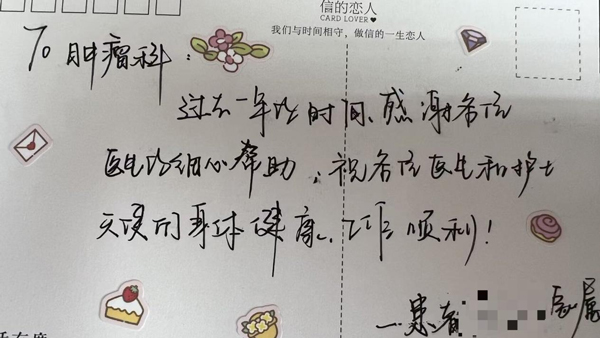 信的恋人
CARD LOVER
我们与时间相守,做信的一生恋人
To 肿瘤科:
过去一年的时间、感谢各位
医生的细心帮助,祝各位医生和护士
天使们身体健康、工作顺利!
—患者 家属